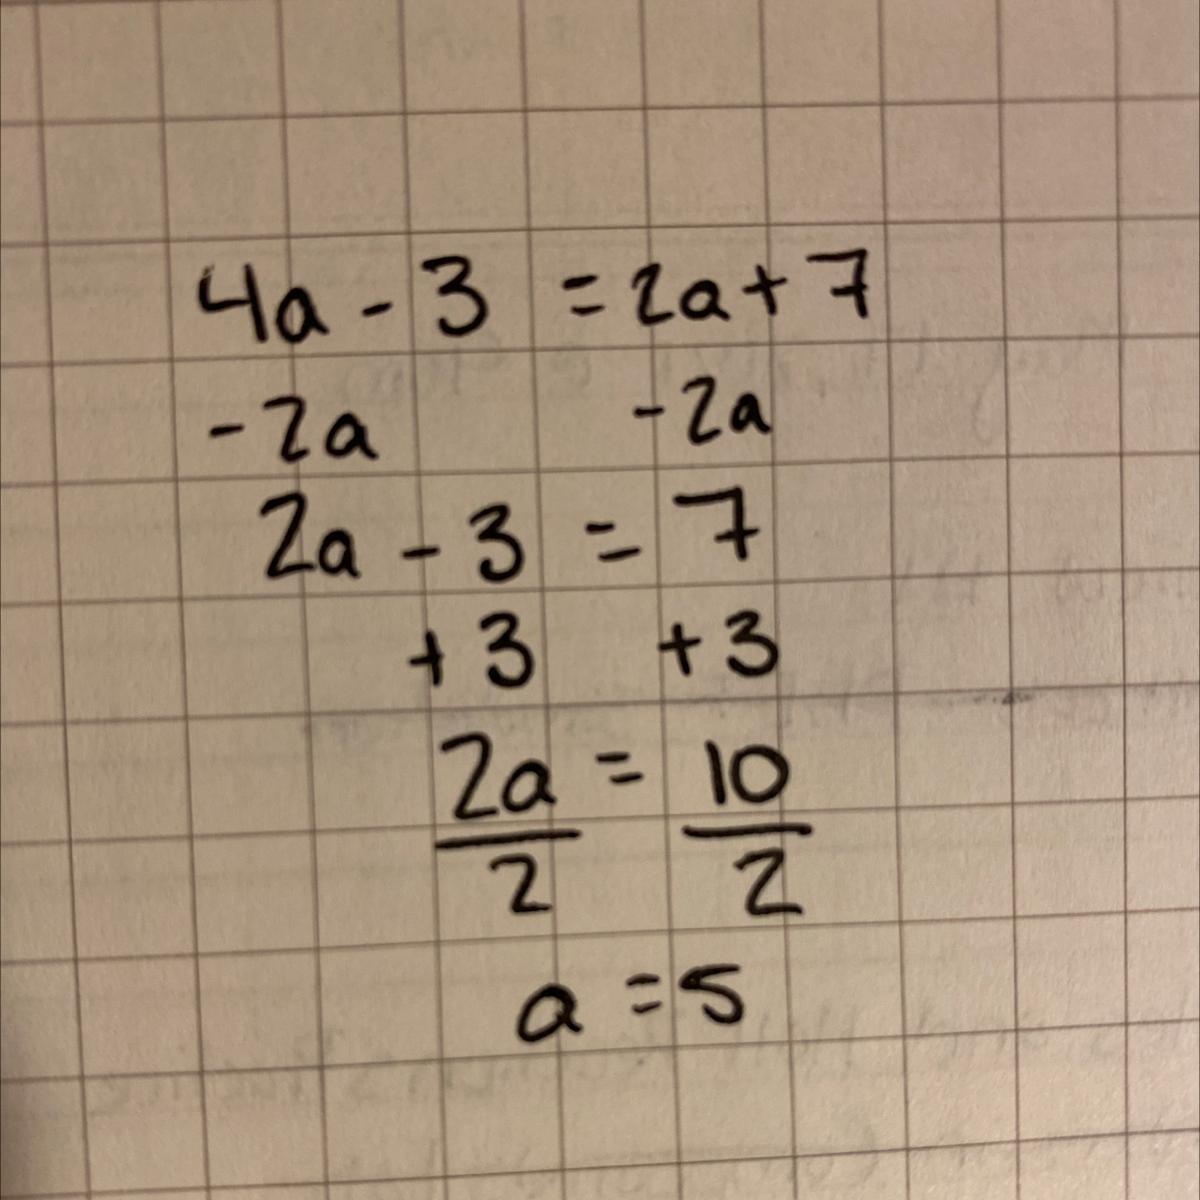 4a - 3 = 2a + 7
-2a -2a
2a - 3 = 7
+3 +3
2a = 10
2 2
a = 5